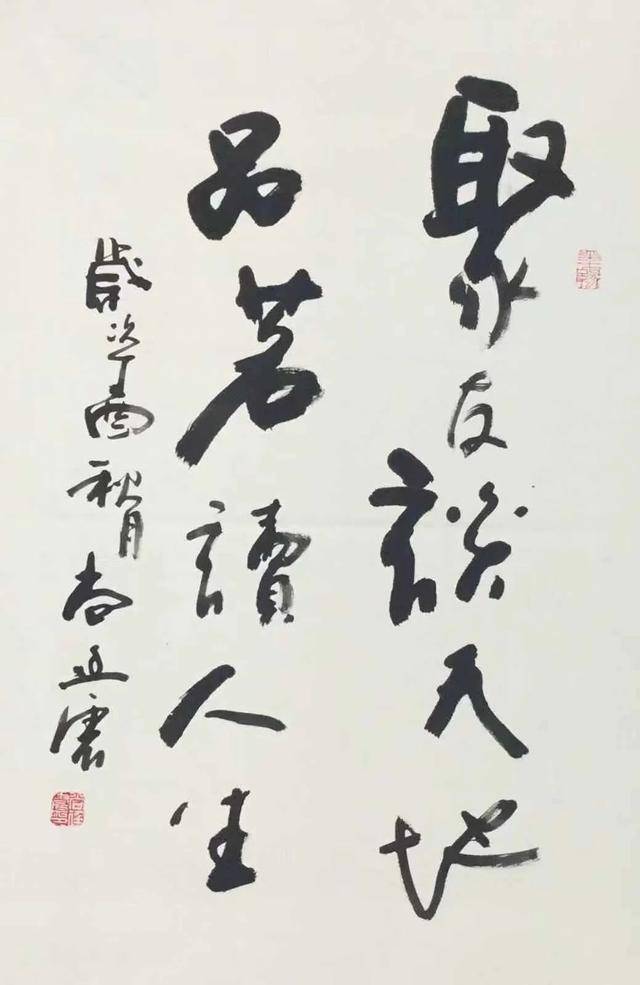 聚友談天地
品茗讀人生
歲次丁酉秋月尚